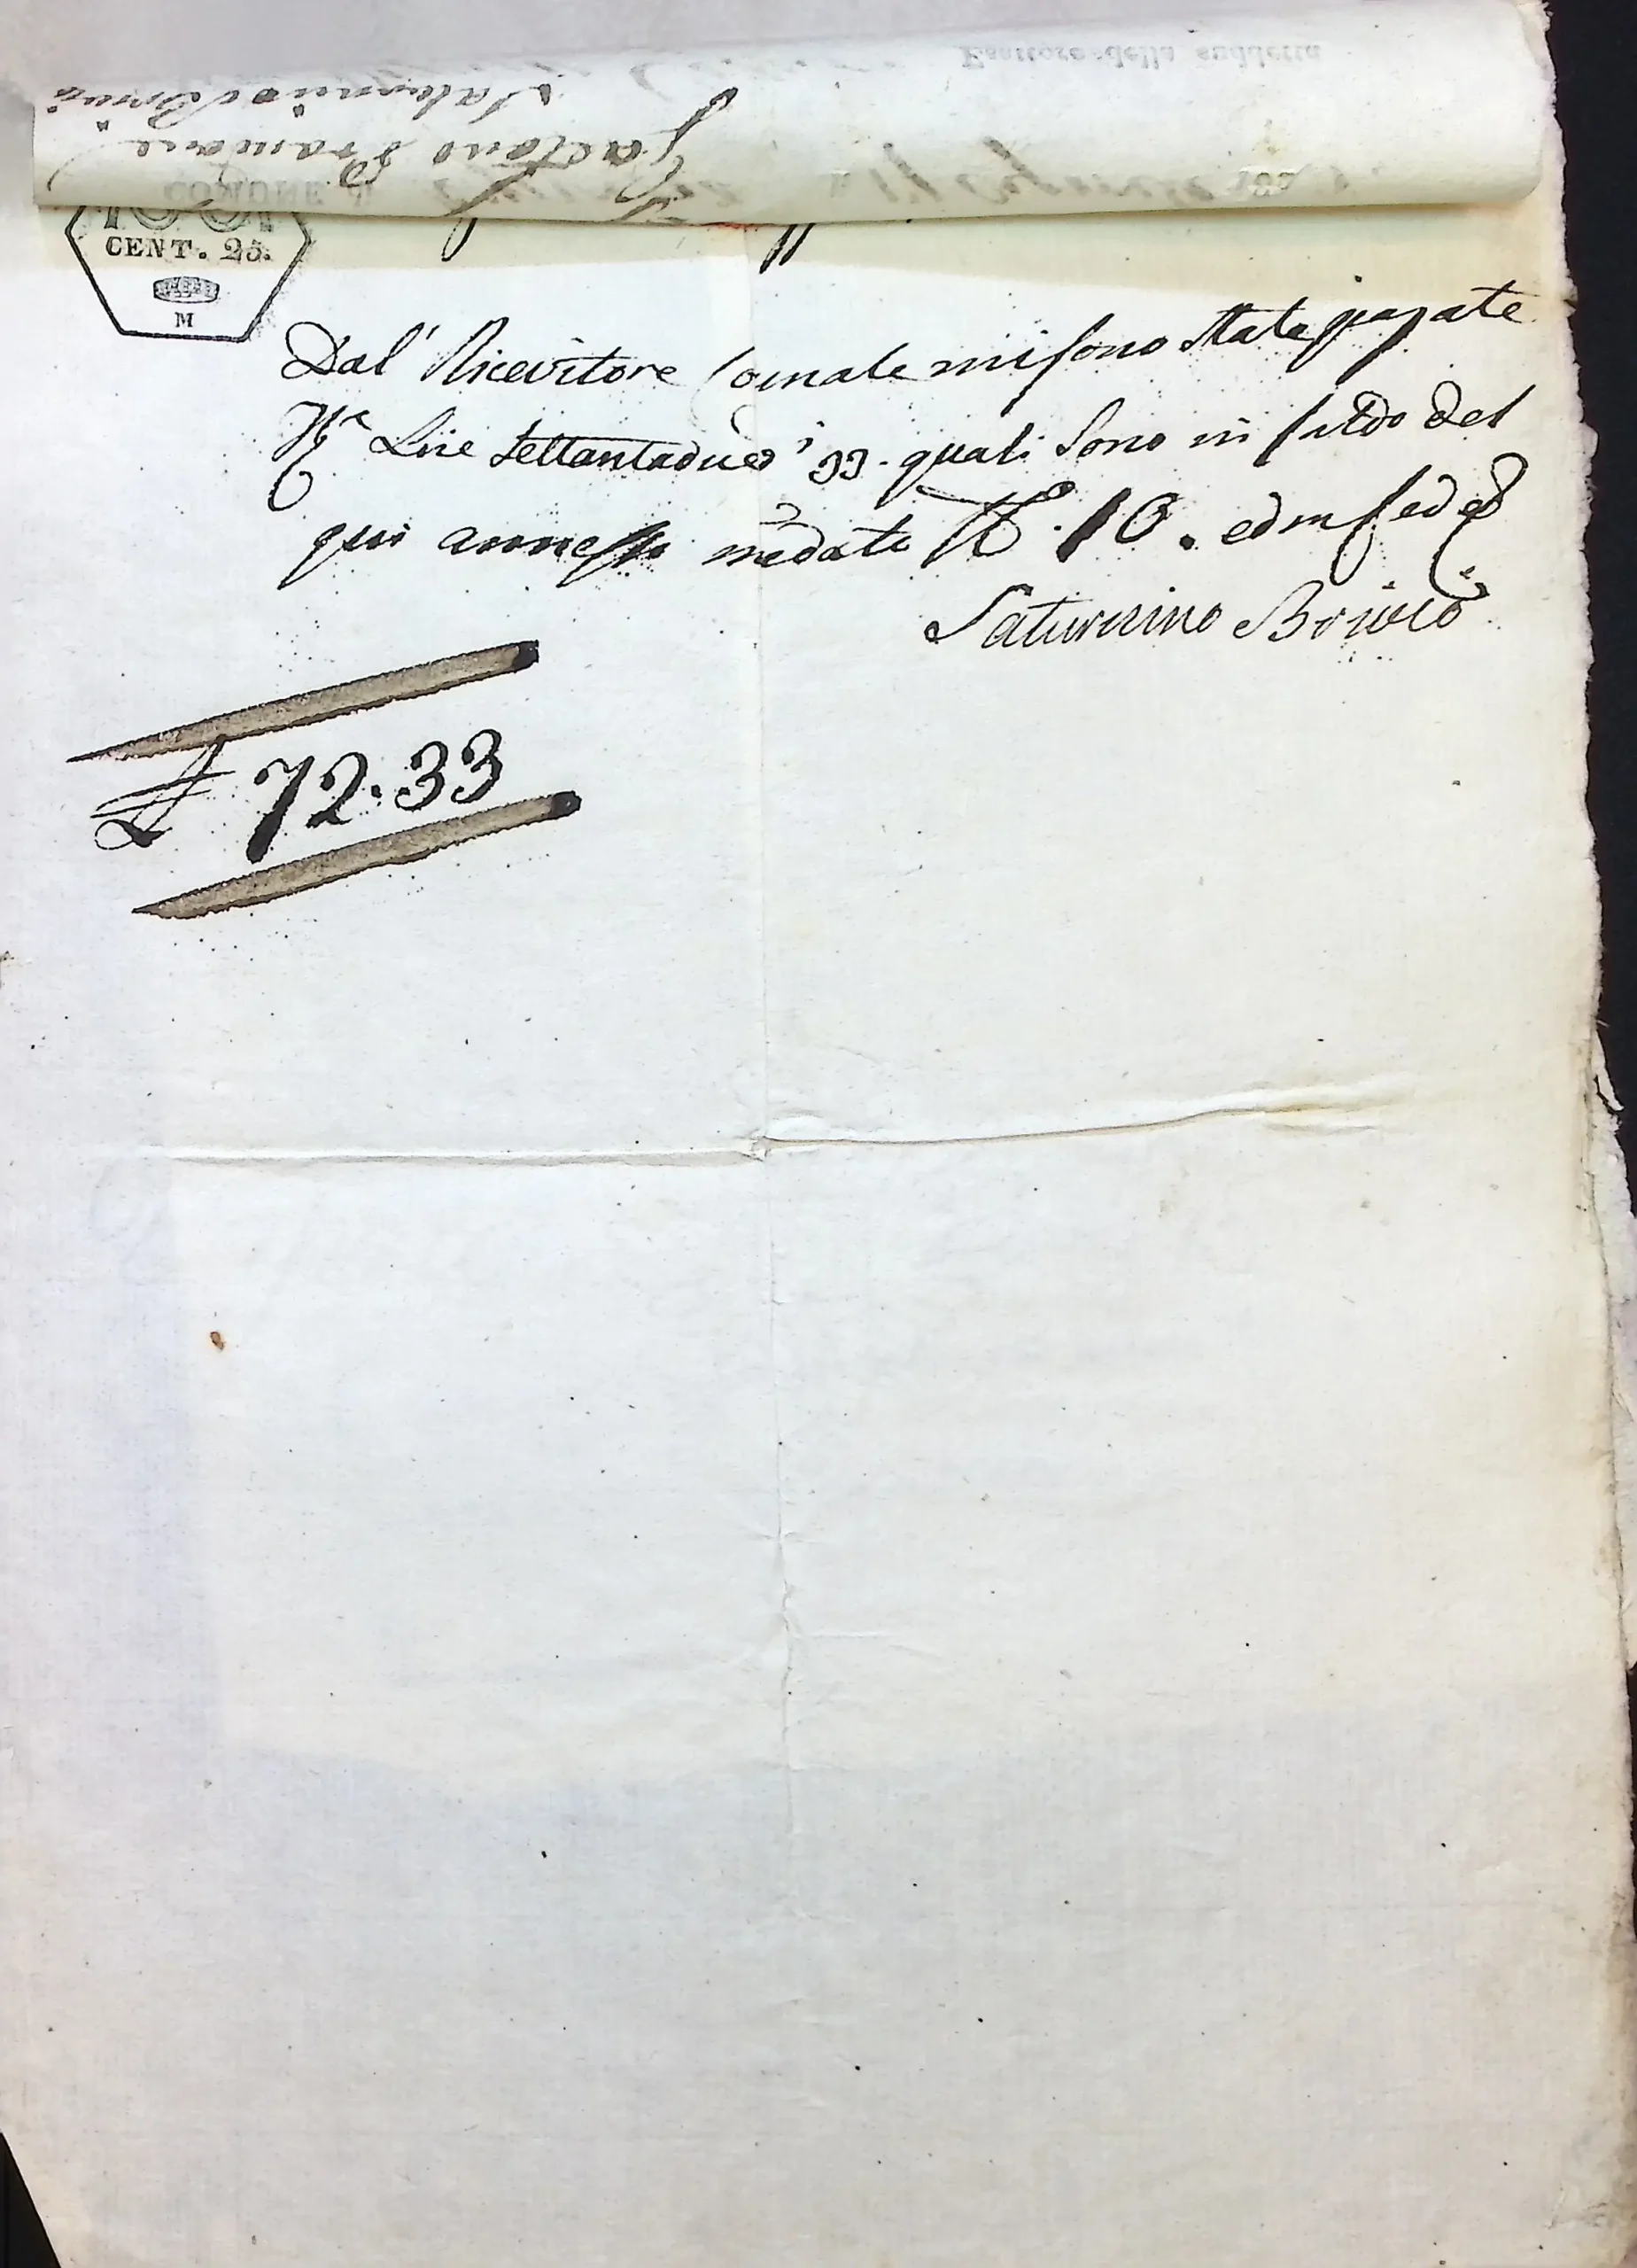 Esattore della suddetta
Gaetano
CENT. 25.
M
Dal' Ricevitore Comale mi sono state pagate
Lire Settantadue 33. quali sono in saldo del
qui annesso mẽdato N.º 10. ed in fede
Saturnino Brivio
£ 72.33